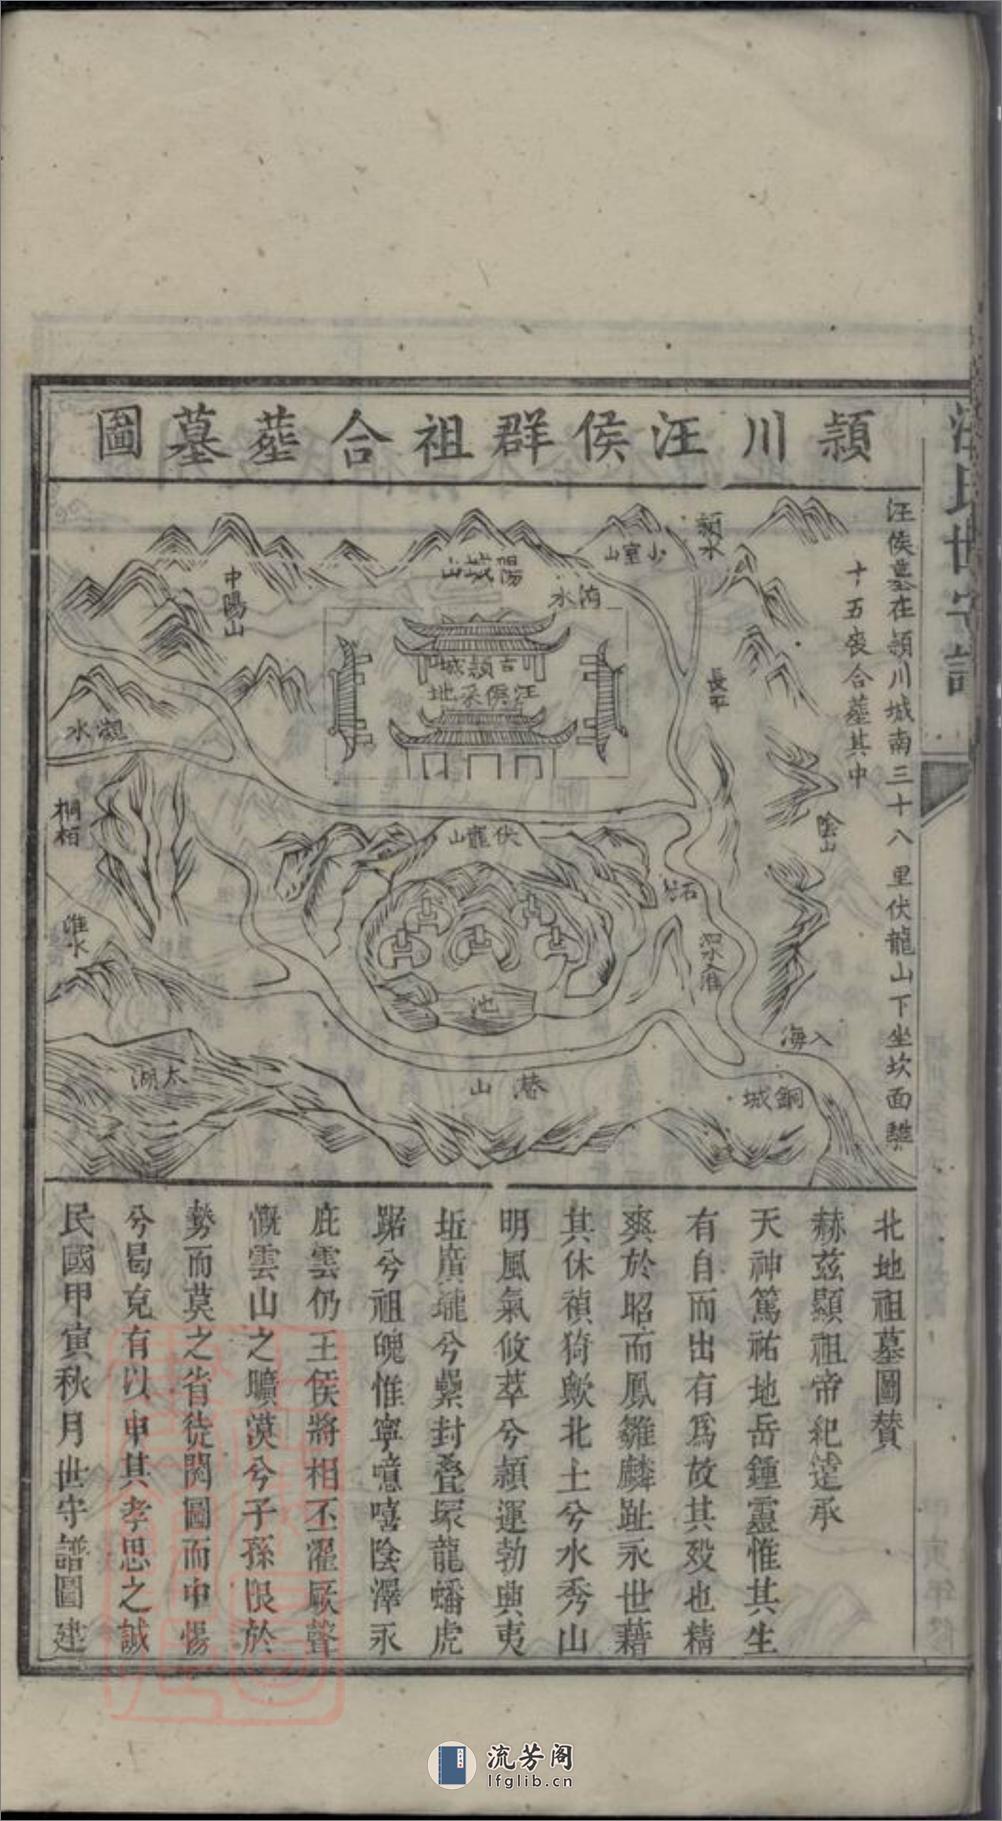 潁川汪侯群祖合葬墓圖
汪侯墓在潁川城南三十八里伏龍山下坐坎面離
十五喪合葬其中
潁水
小室山
陽城山
洧水
中陽山
古潁城
汪侯采地
長平
瀙水
桐栢
淮水
伏龍山
陰山
石梁
泗水入淮
池
入海
太湖
銅城
北地祖墓圖贊
赫茲顯祖帝紀遠承
天神篤祐地岳鍾靈惟其生
有自而出有爲故其歿也精
爽於昭而鳳雛麟趾永世藉
其休禎猗歟北土兮水秀山
明風氣攸萃兮潁運勃興夷
坵廣壠兮纍封疊塚龍蟠虎
踞兮祖魄惟寧噫嘻陰澤永
庇雲仍王侯將相丕濯厥聲
慨雲山之曠漠兮子孫限於
勢而莫之省徒閱圖而中惕
兮曷克有以申其孝思之誠
民國甲寅秋月世守譜圖建
汪氏世守譜
流芳阁
lfglib.cn